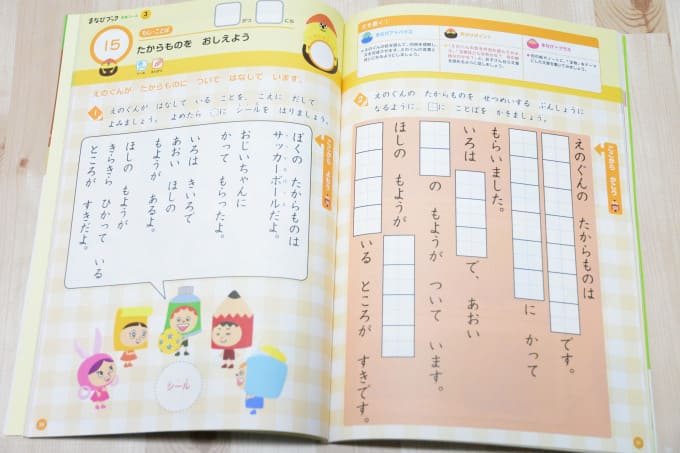 まなびブック
3
15
もじ・ことば
たからものを おしえよう
がつ
にち
えのぐんが たからものに ついて はなして います。
1 えのぐんが はなして いる ことを、こえに だして
よみましょう。よめたら に シールを はりましょう。
ぼくの たからものは
サッカーボールだよ。
おじいちゃんに
かって もらったよ。
いろは きいろで
あおい ほしの
もようが あるよ。
ほしの もようが
きらきら ひかって いる
ところが すきだよ。
シール
2 えのぐんの たからものを せつめいする ぶんしょうに
なるように、 に ことばを かきましょう。
えのぐんの たからものは
です。
に かって
もらいました。
いろは で、あおい
の もようが ついて います。
ほしの もようが
いる ところが すきです。